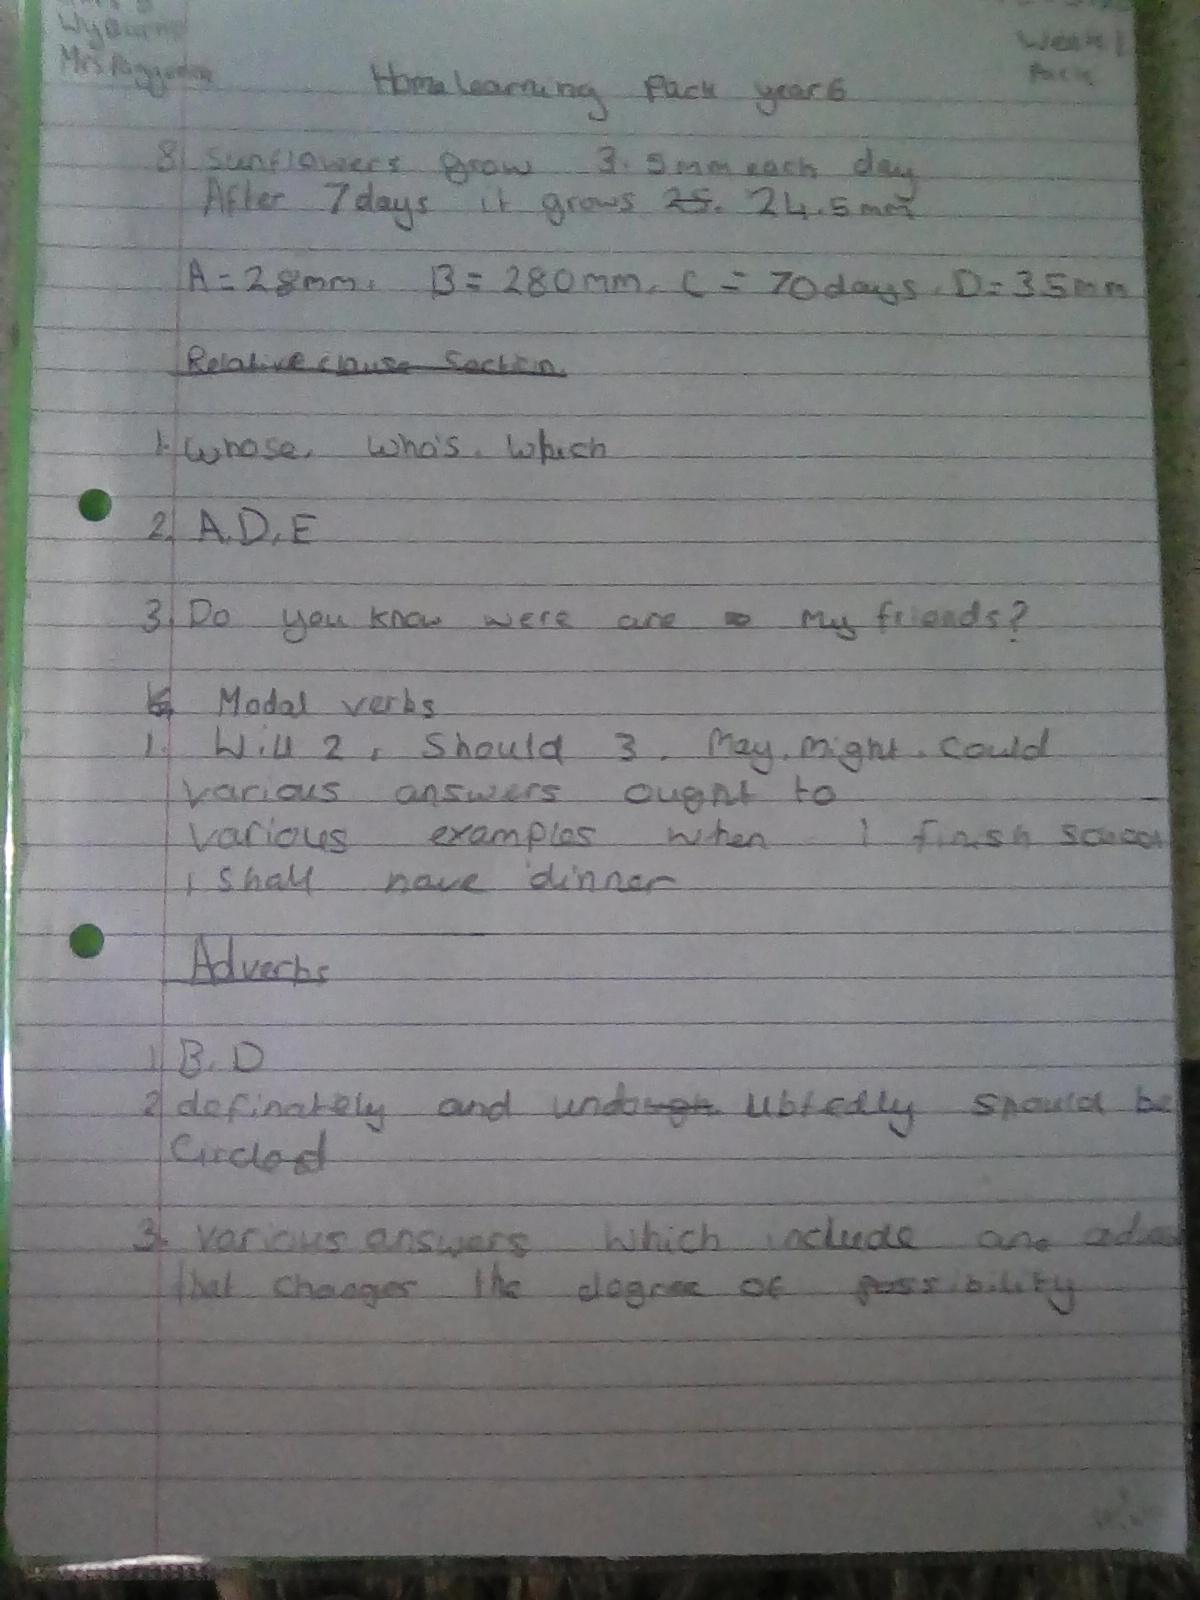 Wybourne
Week 1
Mrs
Pack
Homelearning Pack year 6
8 sunflowers grow 3.5mm each day
After 7days it grows 25. 24.5mm
A = 28mm. B = 280mm. C = 70days. D = 35mm
Relative clause Section
1. Whose. Who's. Which
2. A.D.E
3. Do you know were are my friends?
Modal verbs
1. Will 2, Should 3. May. Might. Could
various answers ought to
various examples when I finish
i shall have dinner
Adverbs
1 B.D
2 definately and undough ubtedly should be
Circled
3. various answers which include an
that changes the degree of possibility